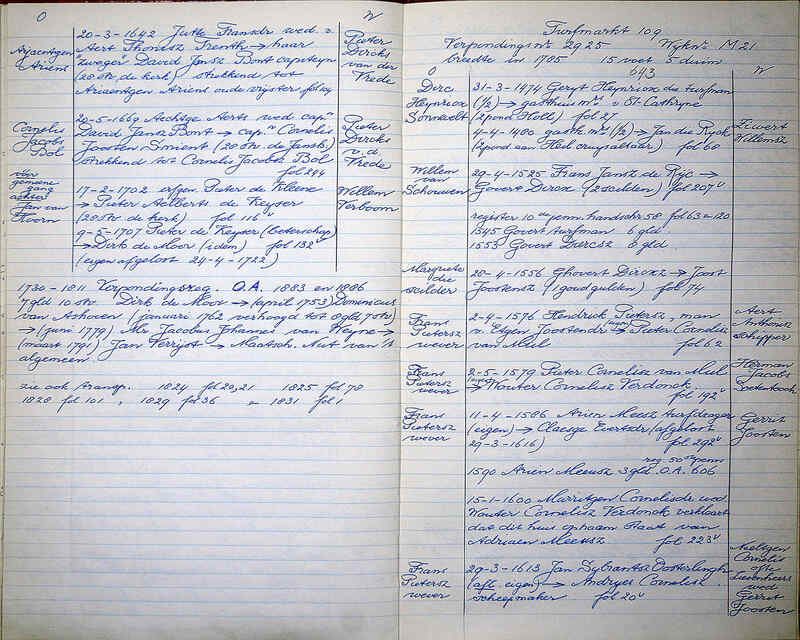 O
W
20-3-1642 Jutte Fransdr wed. v.
Aert Thonisz Trenth → haar
zwager David Jansz Bont capiteyn
(20 str. de kerk) strekkend tot
Ariaentgen Ariens oude vrijster fol 24
Ariaentgen
Ariens
Pieter
Dircks
van der
Vrede
29-5-1669 Aechtge Aerts wed capn
David Jansz Bont → cap.n Cornelis
Joosten Smient (20 str de Jansk)
strekkend tot Cornelis Jacobsz Bol
fol 244
Cornelis
Jacobs
Bol
Pieter
Dircks
v. d.
Vrede
17-2-1702 erfgen. Pieter de Kleene
→ Pieter Aelberts de Keyser
(20 str de kerk) fol 116v
9-5-1707 Pieter de Keyser (beterschap)
→ Dirk de Moor (idem) fol 132v
(eigen afgelost 24-4-1722)
vrier
gemeene
gang
achter
Jan van
Hoorn
Willem
Verboom
1730-1811 Verpondingsreg. O.A. 1883 en 1886
7 gld 10 str Dirk de Moor → (april 1753) Dominicus
van Achoven (januari 1762 verhoogd tot 8 gld 7 str)
→ (juni 1779) Mr Jacobus Johannes van Heyne →
(maart 1791) Jan Verrijst → Maatsch. Nut van 't
algemeen.
zie ook transp. 1824 fol 20,21 1825 fol 78
1828 fol 101, 1829 fol 36 en 1831 fol 1
Turfmarkt 109
Verpondingsnr 2925 Wijknr M 21
breedte in 1785 15 voet 5 duim
643
O
W
Dirc
Heynricx
Sonnevelt
31-3-1474 Geryt Heynricx die turfman
(1/2) → gasthuis mrs v St. Cathryne
(2 pond Holl) fol 27
4-4-1480 gasth. mrs (1/2) → Jan die Ryck
(2 pond aan Heil cruysaltaar) fol 60
Ziwert
Willemsz
Willem
van
Schouwen
29-4-1525 Frans Jansz de Ryc →
Govert Dircx (2 scilden) fol 207v
register 10de penn. handschr 58 fol 63 en 120
1545 Govert turfman 6 gld.
1553 Govert Dircsz 8 gld
Margriete
die
scilder
20-4-1556 Ghovert Dircxz → Joost
Joostensz (1 goudgulden) fol 74
Frans
Pietersz
wever
2-4-1576 Hendrick Pietersz, man
v. Etgen Joostendr (eigen) → Pieter Cornelisz
van Miel fol 62
Aert
Anthonisz
schipper
Frans
Pietersz
wever
2-5-1579 Pieter Cornelisz van Miel
(eigen) → Wouter Cornelisz Verdonck
fol 192v
Herman
Jacobs
Frans
Pietersz
wever
11-4-1586 Arien Meesz turfdrager
(eigen) → Claesge Evertsdr (afgelost
29-3-1616) fol 292v
Gerrit
Joosten
reg. 50ste penn
1590 Arien Meeusz 3 gld. O.A. 606
15-1-1600 Marritgen Cornelisdr wed.
Wouter Cornelisz Verdonck verklaart
dat dit huis op haam staat van
Adriaen Meeusz fol 223v
Frans
Pietersz
wever
29-3-1613 Jan Sybrantsz Oosterlingh
(afl. eigen) → Andryes Cornelisz
scheepmaker fol 20v
Neeltgen
Cornelis
ofte
Lievenheers
wed
Gerrit
Joosten